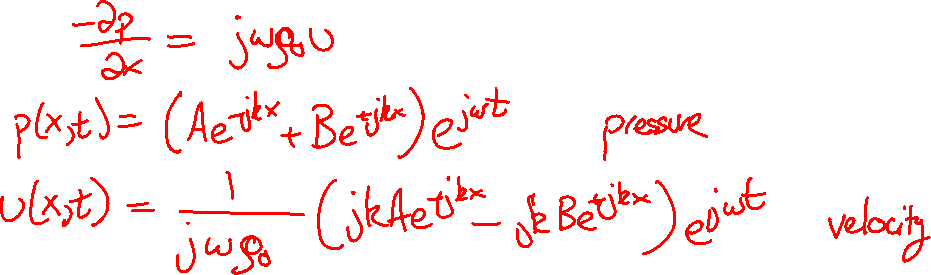 -∂p/∂x = jωρ₀u
p(x,t) = (Ae^{-jkx} + Be^{+jkx})e^{jωt} pressure
u(x,t) = 1/(jωρ₀) (jkAe^{-jkx} - jkBe^{+jkx})e^{jωt} velocity